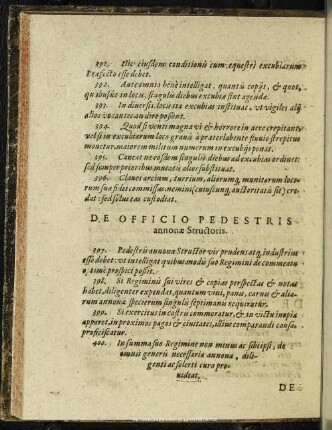 391. Hic eiusdem conditionis cum equestri excubiarum
Præfecto esse debet.
392. Ante omnia bene intelligat, quantis copijs, & quot,
quibusue in locis, singulis diebus excubiæ sint agenda.
393. In diuersis locis ita excubias instituat, vt vigiles alij
alios vocantes audire possint.
394. Quod si venti magna vi & horrore in aere crepitant,
vel si in excubiarum locis grauis à præterlabente fluuio strepitus
mouetur, maiorem militum numerum in excubijs ponat.
395. Caueat ne eosdem singulis diebus ad excubias ordinet:
sed semper prioribus mutatis alios substituat.
396. Claues arcium, turrium, aliorumq; munitorum loco-
rum suæ fidei commissas nemini (cuiuscunq; auctoritatis sit) cre-
dat: sed solus eas custodiat.
DE OFFICIO PEDESTRIS
annonæ Structoris.
397. Pedestris annonæ Structor vir prudens atq; industrius
esse debet: vt intelligat quibus modis suo Regimini de commeatu
prospici possit.
398. Si Regiminis sui vires & copias perspectas & notas
habet, diligenter expendat, quantum vini, panis, carnis & alia-
rum annonæ specierum singulis septimanis requiratur.
399. Si exercitus in castris commoratur, & in victu inopia
apparet, in proximos pagos & ciuitates, illius comparandi causa
proficiscatur.
400. In summa suo Regimine non minus ac sibi ipsi, de
omnis generis necessaria annona, dili-
genti ac celeri cura pro-
uideat.
DE